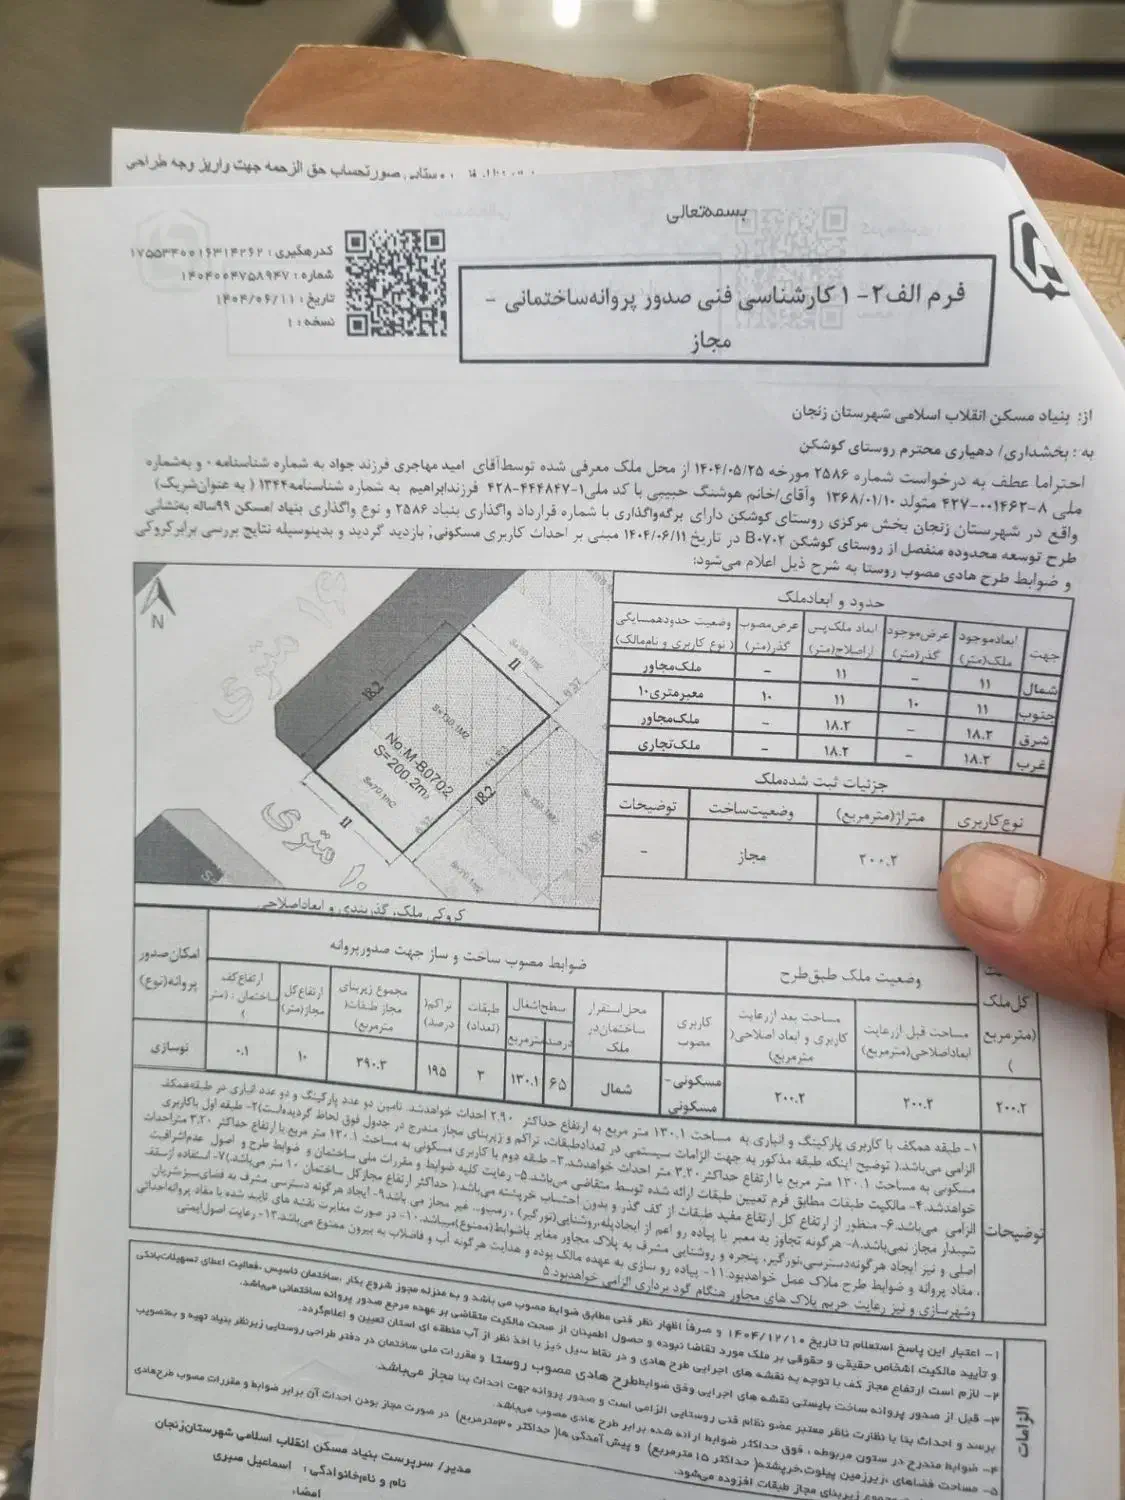 صورتحساب حق الزحمه جهت واریز وجه طراحی
بسمه‌تعالی
کدرهگیری : ۱۷۵۵۳۴۰۰۱۶۳۱۴۲۶۲
شماره : ۱۴۰۴۰۰۴۷۵۸۹۴۷
تاریخ : ۱۴۰۴/۰۶/۱۱
نسخه : ۱
فرم الف۲- ۱ کارشناسی فنی صدور پروانه‌ساختمانی -
مجاز
از: بنیاد مسکن انقلاب اسلامی شهرستان زنجان
به : بخشداری/ دهیاری محترم روستای کوشکن
احتراما عطف به درخواست شماره ۲۵۸۶ مورخه ۱۴۰۴/۰۵/۲۵ از محل ملک معرفی شده توسط‌آقای امید مهاجری فرزند جواد به شماره شناسنامه ۰ و به‌شماره
ملی ۸-۰۰۱۴۶۲-۴۲۷ متولد ۱۳۶۸/۰۱/۱۰ وآقای/خانم هوشنگ حبیبی با کد ملی۱-۴۴۴۸۴۷-۴۲۸ فرزندابراهیم به شماره شناسنامه۱۳۴۴ ( به عنوان‌شریک)
واقع در شهرستان زنجان بخش مرکزی روستای کوشکن دارای برگه‌واگذاری با شماره قرارداد واگذاری بنیاد ۲۵۸۶ و نوع واگذاری بنیاد /مسکن ۹۹ساله به‌نشانی
طرح توسعه محدوده منفصل از روستای کوشکن B۰۷۰۲ در تاریخ ۱۴۰۴/۰۶/۱۱ مبنی بر احداث کاربری مسکونی; بازدید گردید و بدینوسیله نتایج بررسی برابرکروکی
و ضوابط طرح هادی مصوب روستا به شرح ذیل اعلام می‌شود:
N
۱۶ متری
۱۰ متری
18.2
11
No:M-B0702
S=200.2m2
18.2
11
S=130.1M2
S=70.1m2
کروکی ملک، گذربندی و ابعاداصلاحی
حدود و ابعادملک
جهت ابعادموجود ملک(متر) عرض‌موجود گذر(متر) ابعاد ملک‌پس ازاصلاح(متر) عرض‌مصوب گذر(متر) وضعیت حدودهمسایگی ( نوع کاربری و نام‌مالک)
شمال ۱۱ - ۱۱ - ملک‌مجاور
جنوب ۱۱ ۱۰ ۱۱ ۱۰ معبرمتری۱۰
شرق ۱۸.۲ - ۱۸.۲ - ملک‌مجاور
غرب ۱۸.۲ - ۱۸.۲ - ملک‌تجاری
جزئیات ثبت شده‌ملک
نوع‌کاربری متراژ(مترمربع) وضعیت‌ساخت توضیحات
۲۰۰.۲ مجاز -
کل‌ملک (مترمربع) وضعیت ملک طبق‌طرح ضوابط مصوب ساخت و ساز جهت صدورپروانه امکان‌صدور پروانه(نوع)
مساحت قبل ازرعایت ابعاداصلاحی(مترمربع) مساحت بعد ازرعایت کاربری و ابعاد اصلاحی( مترمربع) کاربری مصوب محل‌استقرار ساختمان‌در ملک سطح‌اشغال درصد مترمربع طبقات (تعداد) تراکم( درصد) مجموع زیربنای مجاز طبقات( مترمربع) ارتفاع‌کل مجاز(متر) ارتفاع‌کف ساختمان : (متر )
۲۰۰.۲ ۲۰۰.۲ ۲۰۰.۲ مسکونی- مسکونی شمال ۶۵ ۱۳۰.۱ ۳ ۱۹۵ ۳۹۰.۳ ۱۰ ۰.۱ نوسازی
توضیحات
۱- طبقه همکف با کاربری پارکینگ و انباری به مساحت ۱۳۰.۱ متر مربع به ارتفاع حداکثر ۲.۹۰ احداث خواهدشد. تامین دو عدد پارکینگ و دو عدد انباری در طبقه‌همکف
الزامی می‌باشد.( توضیح اینکه طبقه مذکور به جهت الزامات سیستمی در تعدادطبقات، تراکم و زیربنای مجاز مندرج در جدول فوق لحاظ گردیده‌است)۲- طبقه اول باکاربری
مسکونی به مساحت ۱۳۰.۱ متر مربع با ارتفاع حداکثر ۳.۲۰ متر احداث خواهدشد.۳- طبقه دوم با کاربری مسکونی به مساحت ۱۳۰.۱ متر مربع با ارتفاع حداکثر ۳.۲۰ متراحداث
خواهدشد.۴- مالکیت طبقات مطابق فرم تعیین طبقات ارائه شده توسط متقاضی می‌باشد.۵- رعایت کلیه ضوابط و مقررات ملی ساختمان و ضوابط طرح و اصول عدم‌اشرافیت
الزامی می‌باشد.۶- منظور از ارتفاع کل ارتفاع مفید طبقات از کف گذر و بدون احتساب خرپشته می‌باشد.( حداکثر ارتفاع مجازکل ساختمان ۱۰ متر می‌باشد.)۷- استفاده ازسقف
شیبدار مجاز نمی‌باشد.۸- هرگونه تجاوز به معبر یا پیاده رو اعم از ایجادپله،روشنایی(نورگیر) ، رمپ‌و.. غیر مجاز می باشد.۹- ایجاد هرگونه دسترسی مشرف به فضای‌سبزشریان
اصلی و نیز ایجاد هرگونه‌دسترسی،نورگیر، پنجره و روشنایی مشرف به پلاک مجاور مغایر باضوابط(ممنوع)میباشد.۱۰- در صورت مغایرت نقشه های تایید شده با مفاد پروانه‌احداثی
، مفاد پروانه و ضوابط طرح ملاک عمل خواهدبود.۱۱- پیاده رو سازی به عهده مالک بوده و هدایت هرگونه آب و فاضلاب به بیرون ممنوع می‌باشد.۱۲- رعایت اصول‌ایمنی
وشهرسازی و نیز رعایت حریم پلاک های مجاور هنگام گود برداری الزامی خواهدبود.۵
الزامات
۱- اعتبار این پاسخ استعلام تا تاریخ ۱۴۰۴/۱۲/۱۰ و صرفاً اظهار نظر فنی مطابق ضوابط مصوب می باشد و به منزله مجوز شروع بکار ،ساختمان تاسیس ،فعالیت اعطای تسهیلات‌بانکی
و تأیید مالکیت اشخاص حقیقی و حقوقی بر ملک مورد تقاضا نبوده و حصول اطمینان از صحت مالکیت متقاضی بر عهده مرجع صدور پروانه ساختمانی می‌باشد.
۲- لازم است ارتفاع مجاز کف با توجه به نقشه های اجرایی طرح هادی و در نقاط سیل خیز با اخذ نظر از آب منطقه ای استان تعیین و اعلام‌گردد.
۳- قبل از صدور پروانه ساخت بایستی نقشه های اجرایی وفق ضوابط‌طرح هادی مصوب روستا و مقررات ملی ساختمان در دفتر طراحی روستایی زیرنظر بنیاد تهیه و به‌تصویب
برسد و احداث بنا با نظارت ناظر معتبر عضو نظام فنی روستایی الزامی است و صدور پروانه جهت احداث بنا مجاز می‌باشد.
۴- ضوابط مندرج در ستون مربوطه ، فوق حداکثر ضوابط ارائه شده برابر طرح هادی مصوب می‌باشد.
۵- مساحت فضاهای ،زیرزمین پیلوت،خرپشته( حداکثر ۱۵مترمربع) و پیش آمدگی ها( حداکثر ۳۰مترمربع) در صورت مجاز بودن احداث آن برابر ضوابط و مقررات مصوب طرح‌هادی
مجموع زیربنای مجاز طبقات افزوده می‌شود.
مدیر/ سرپرست بنیاد مسکن انقلاب اسلامی شهرستان‌زنجان
نام و نام‌خانوادگی: اسماعیل صبری
امضاء